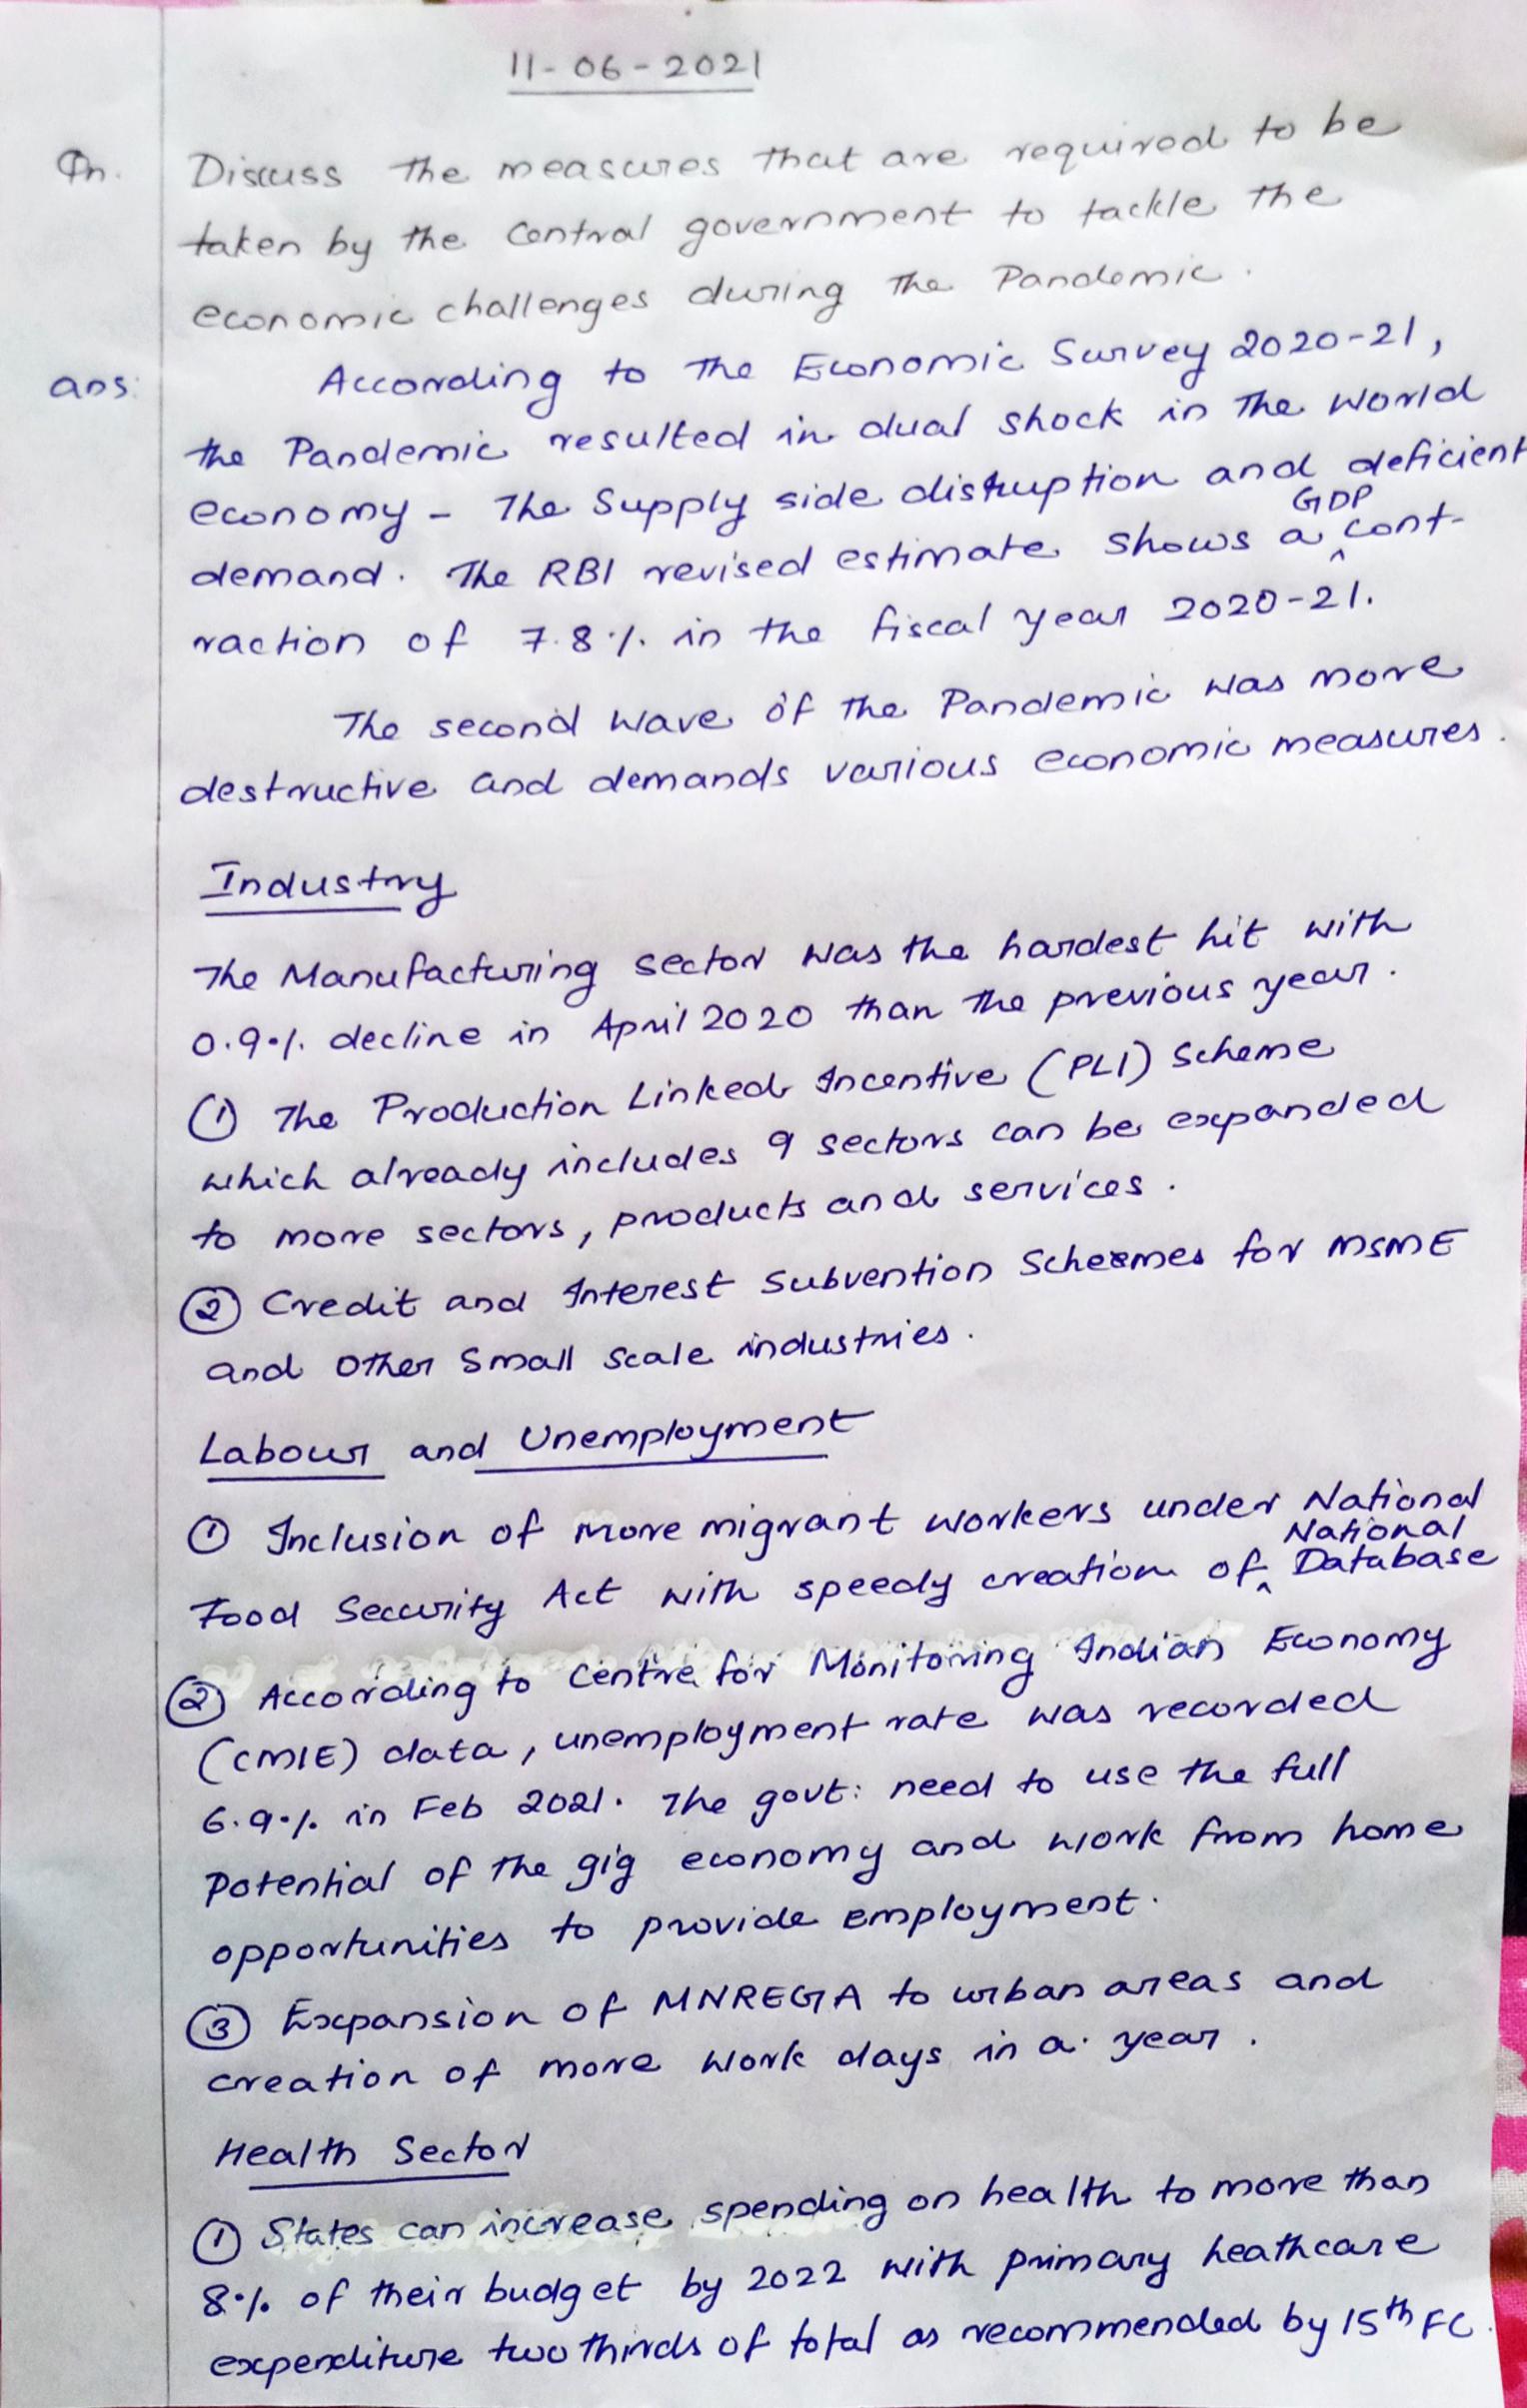 11-06-2021
Qn. Discuss the measures that are required to be
taken by the Central government to tackle the
economic challenges during the Pandemic.
ans: According to the Economic Survey 2020-21,
the Pandemic resulted in dual shock in the world
economy - The Supply side distruption and deficient
demand. The RBI revised estimate shows a GDP cont-
raction of 7.8% in the fiscal year 2020-21.
The second wave of the Pandemic was more
destructive and demands various economic measures.
Industry
The Manufacturing sector was the hardest hit with
0.9% decline in April 2020 than the previous year.
① The Production Linked Incentive (PLI) Scheme
which already includes 9 sectors can be expanded
to more sectors, products and services.
② Credit and Interest Subvention Schemes for MSME
and Other Small Scale industries.
Labour and Unemployment
① Inclusion of more migrant workers under National
Food Security Act with speedy creation of National Database
② According to Centre for Monitoring Indian Economy
(CMIE) data, unemployment rate was recorded
6.9% in Feb 2021. The govt: need to use the full
Potential of the gig economy and work from home
opportunities to provide employment.
③ Expansion of MNREGA to urban areas and
creation of more work days in a year.
Health Sector
① States can increase spending on health to more than
8% of their budget by 2022 with primary heathcare
expenditure two thirds of total as recommended by 15th FC.